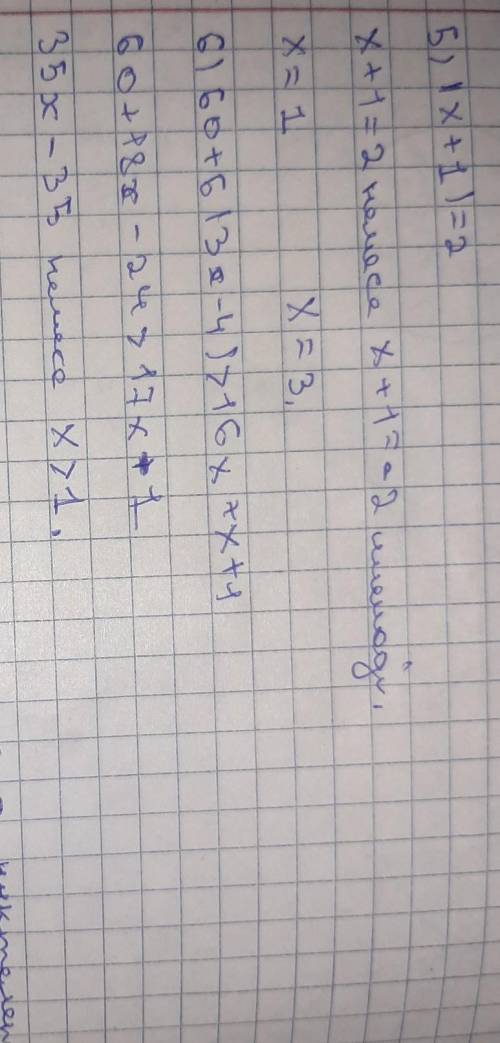 5) |x+1|=2
x+1=2 немесе x+1=-2 шешейді.
x=1 x=3.
6) 60+6(3x-4)>16x+x+1
60+18x-24>17x+1
35x-35 немесе x>1.